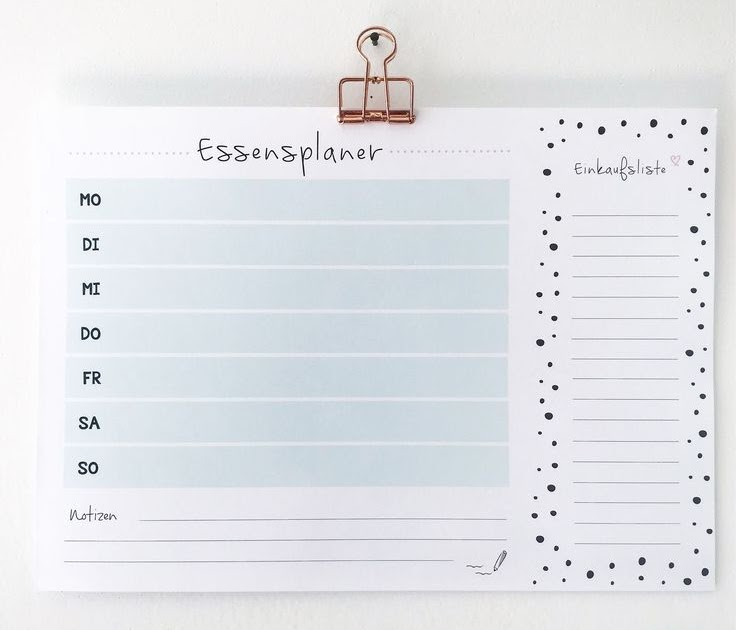 Essensplaner
MO
DI
MI
DO
FR
SA
SO
Notizen
Einkaufsliste